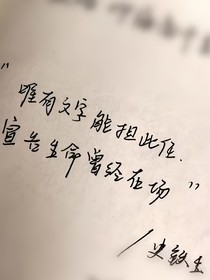 "唯有文字能担此任.
宣告生命曾经在场"
/史铁生